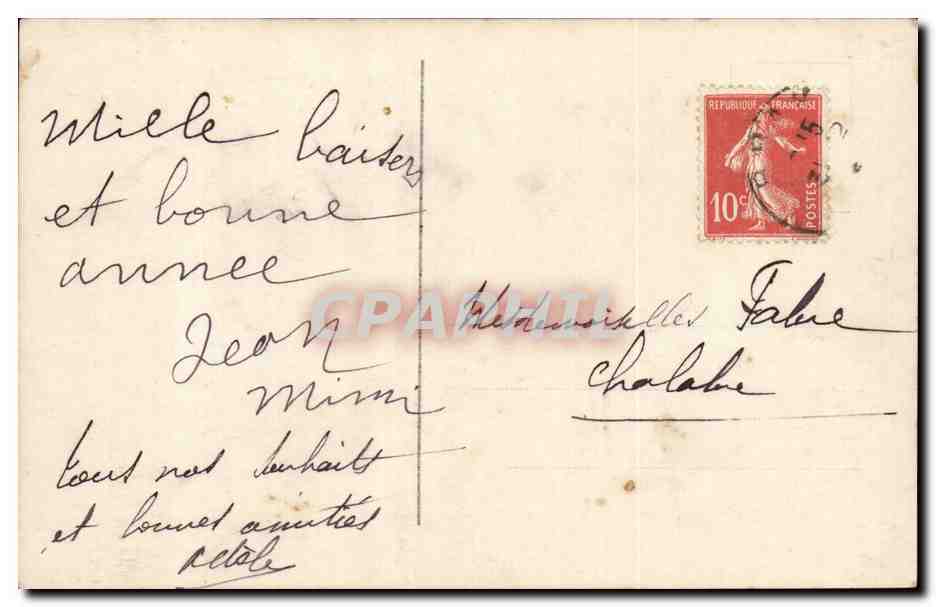 Mille baisers
et bonne
année
Jean
Mimi
tous nos souhaits
et bonnes amitiés
Adèle
REPUBLIQUE FRANÇAISE
10c
POSTES
Mesdemoiselles Fabre
Chalabre
CPAPHIL